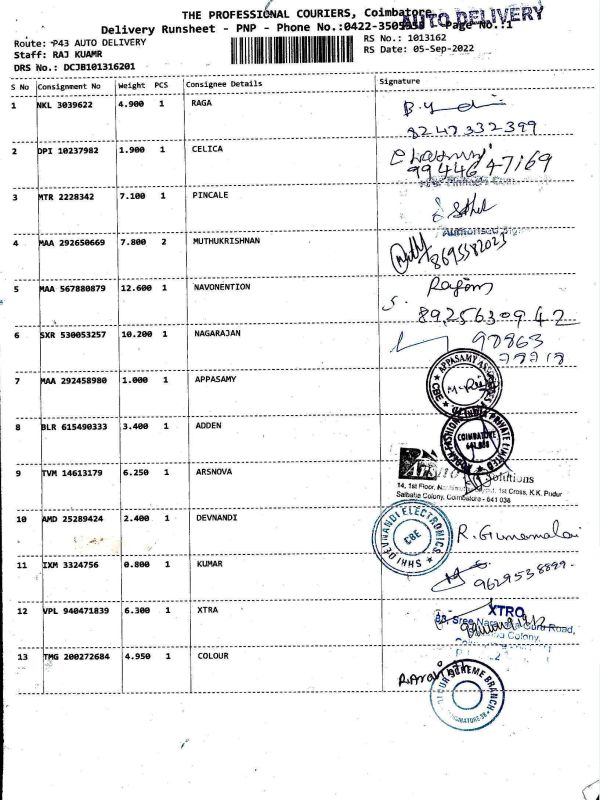 THE PROFESSIONAL COURIERS, Coimbatore
AUTO DELIVERY
Delivery Runsheet - PNP - Phone No.:0422-350595 Page No.:1
Route: P43 AUTO DELIVERY
RS No.: 1013162
Staff: RAJ KUAMR
RS Date: 05-Sep-2022
DRS No.: DCJB101316201
S No Consignment No Weight PCS Consignee Details Signature
1 NKL 3039622 4.900 1 RAGA
8247332399
2 DPI 10237982 1.900 1 CELICA
9944647169
3 MTR 2228342 7.100 1 PINCALE
4 MAA 292650669 7.800 2 MUTHUKRISHNAN
8695582023
5 MAA 567880879 12.600 1 NAVONENTION
8925630942
6 SXR 530053257 10.200 1 NAGARAJAN
90863
7 MAA 292458980 1.000 1 APPASAMY
APPASAMY CBE
8 BLR 615490333 3.400 1 ADDEN
FASHION PRIVATE LIMITED
COIMBATORE
9 TVM 14613179 6.250 1 ARSNOVA
Solutions
14, 1st Floor, 1st Cross, K.K. Pudur
Saibaba Colony, Coimbatore - 641 038
10 AMD 25289424 2.400 1 DEVNANDI
SHHI DEVNANDI ELECTRONICS
CBE
R. Gunamalai
11 IXM 3324756 0.800 1 KUMAR
9629538899
12 VPL 940471839 6.300 1 XTRA
XTRO
83, Sree Road,
Colony,
13 TMG 200272684 4.950 1 COLOUR
SCHEME BRANCH